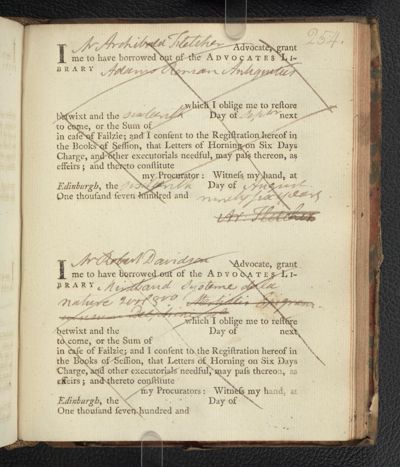 254.
I Mr Archibald Fletcher Advocate, grant
me to have borrowed out of the ADVOCATES LI-
BRARY Adams Roman Antiquities
which I oblige me to restore
betwixt and the Day of next
to come, or the Sum of
in case of Failzie; and I consent to the Registration hereof in
the Books of Session, that Letters of Horning on Six Days
Charge, and other executorials needful, may pass thereon, as
effeirs; and thereto constitute
my Procurator: Witness my hand, at
Edinburgh, the Day of August
One thousand seven hundred and ninety six years
Ar. Fletcher
I Mr Robert Davidson Advocate, grant
me to have borrowed out of the ADVOCATES LI-
BRARY Mirabaud Systeme de la
nature 2 vol 8vo
which I oblige me to restore
betwixt and the Day of next
to come, or the Sum of
in case of Failzie; and I consent to the Registration hereof in
the Books of Session, that Letters of Horning on Six Days
Charge, and other executorials needful, may pass thereon, as
effeirs; and thereto constitute
my Procurators: Witness my hand, at
Edinburgh, the Day of
One thousand seven hundred and